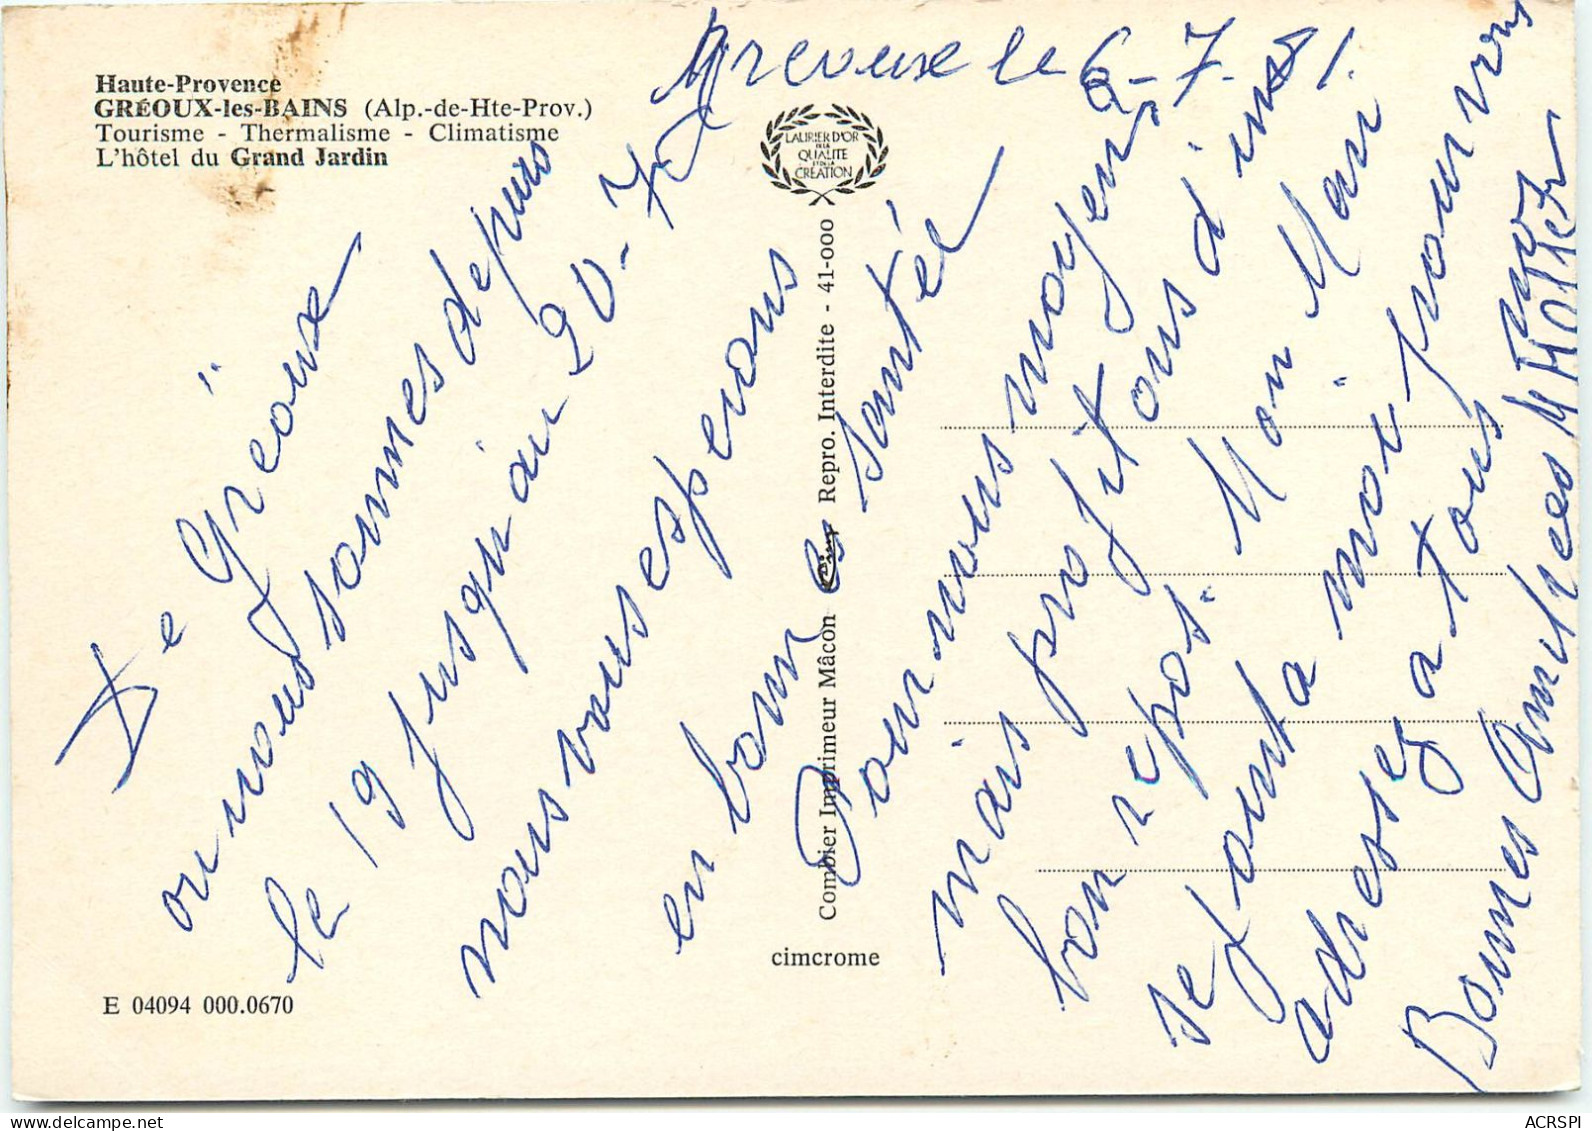 Haute-Provence
GRÉOUX-les-BAINS (Alp.-de-Hte-Prov.)
Tourisme - Thermalisme - Climatisme
L'hôtel du Grand Jardin
le 6-7-81.
De Gréoux
ou nous sommes depuis
le 19 jusqu'au 20-7
nous vous esperons
en bonne santé
Pour nous moyen
mais profitons d'un
bon repos. Mon Mari
se joint a moi pour vous
adressez a tous nos
Bonnes Amitiées M
LAURIER D'OR
DE LA
QUALITE
ET DE LA
CRÉATION
Combier Imprimeur Mâcon Cim Repro. Interdite - 41-000
cimcrome
E 04094 000.0670
ACRSPI